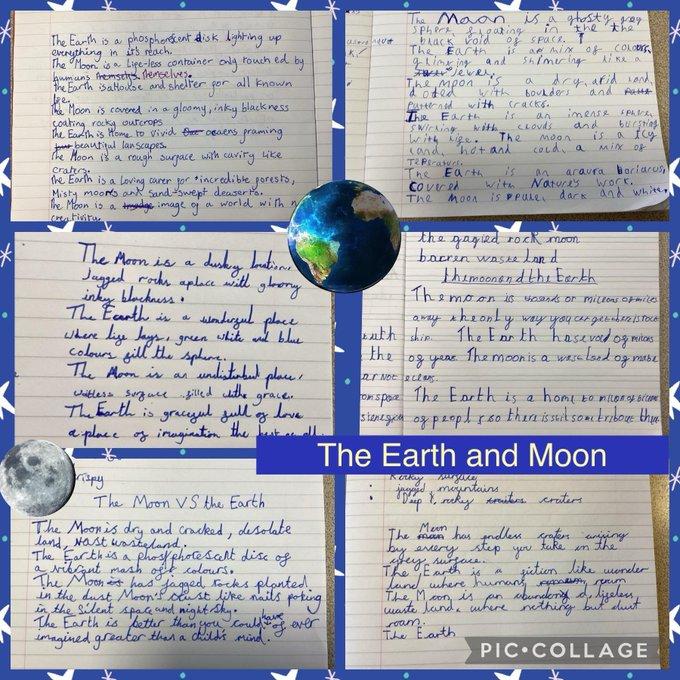 The Earth is a phosphorescent disk lighting up
everything in it's reach.
The Moon is a life-less container only touched by
humans themselves.
the Earth is a House and shelter for all known
life.
The Moon is covered in a gloomy, inky blackness
coating rocky outcrops
The Earth is Home to vivid oceans framing
beautiful lanscapes.
The Moon is a rough surface with cavity like
craters.
the Earth is a loving carer for incredible forests,
Misty moors and sand-swept deaserts.
the Moon is a image of a world with n
creativity.
The Moon is a ghosty grey
sphere floating in the the
black void of space.
The Earth is an mix of colours,
gliming and shimering like a
jewel.
The moon is a dry, arid land,
doted with boulders and
patterned with cracks.
The Earth is an imense sphere,
swirling with clouds and bursting
with life. The moon is a icy
land, hot and cold, a mix of
teperature.
The Earth is an
covered with Nature's work.
The Moon is dark and white.
The Moon is a dusky location,
Jagged rocks aplace with gloomy
inky blackness.
The Earth is a wonderful place
where life lays, green white and blue
colours fill the sphere.
The Moon is an undisturbed place,
surface filled with grace.
The Earth is graceful full of love
a place of imagination the best of all
the rock moon
barren waste land
the moon and the Earth
The moon is of miles
away the only way you can get there is rock
ship. The Earth has of
of year. The moon is a waste land of
The Earth is a home to of
of people so there is
The Earth and Moon
rispy
The Moon VS the Earth
The Moon is dry and cracked, desolate
land, vast wasteland.
The Earth is a phosphorescent disc of
a vibrant mash of colours.
The Moon has jagged rocks planted
in the dust Moon's crust like nails poking
in the silent space and night sky.
The Earth is better than you could have ever
imagined greater than a child's mind.
Rocky surface
jagged mountains
Deep & rocky craters
The Moon has endless craters
by every step you take in the
grey surface.
The Earth is a like wonder
land, where humans roam
The Moon is an lifeless
waste land, where nothing but dust
roam.
The Earth
PIC•COLLAGE